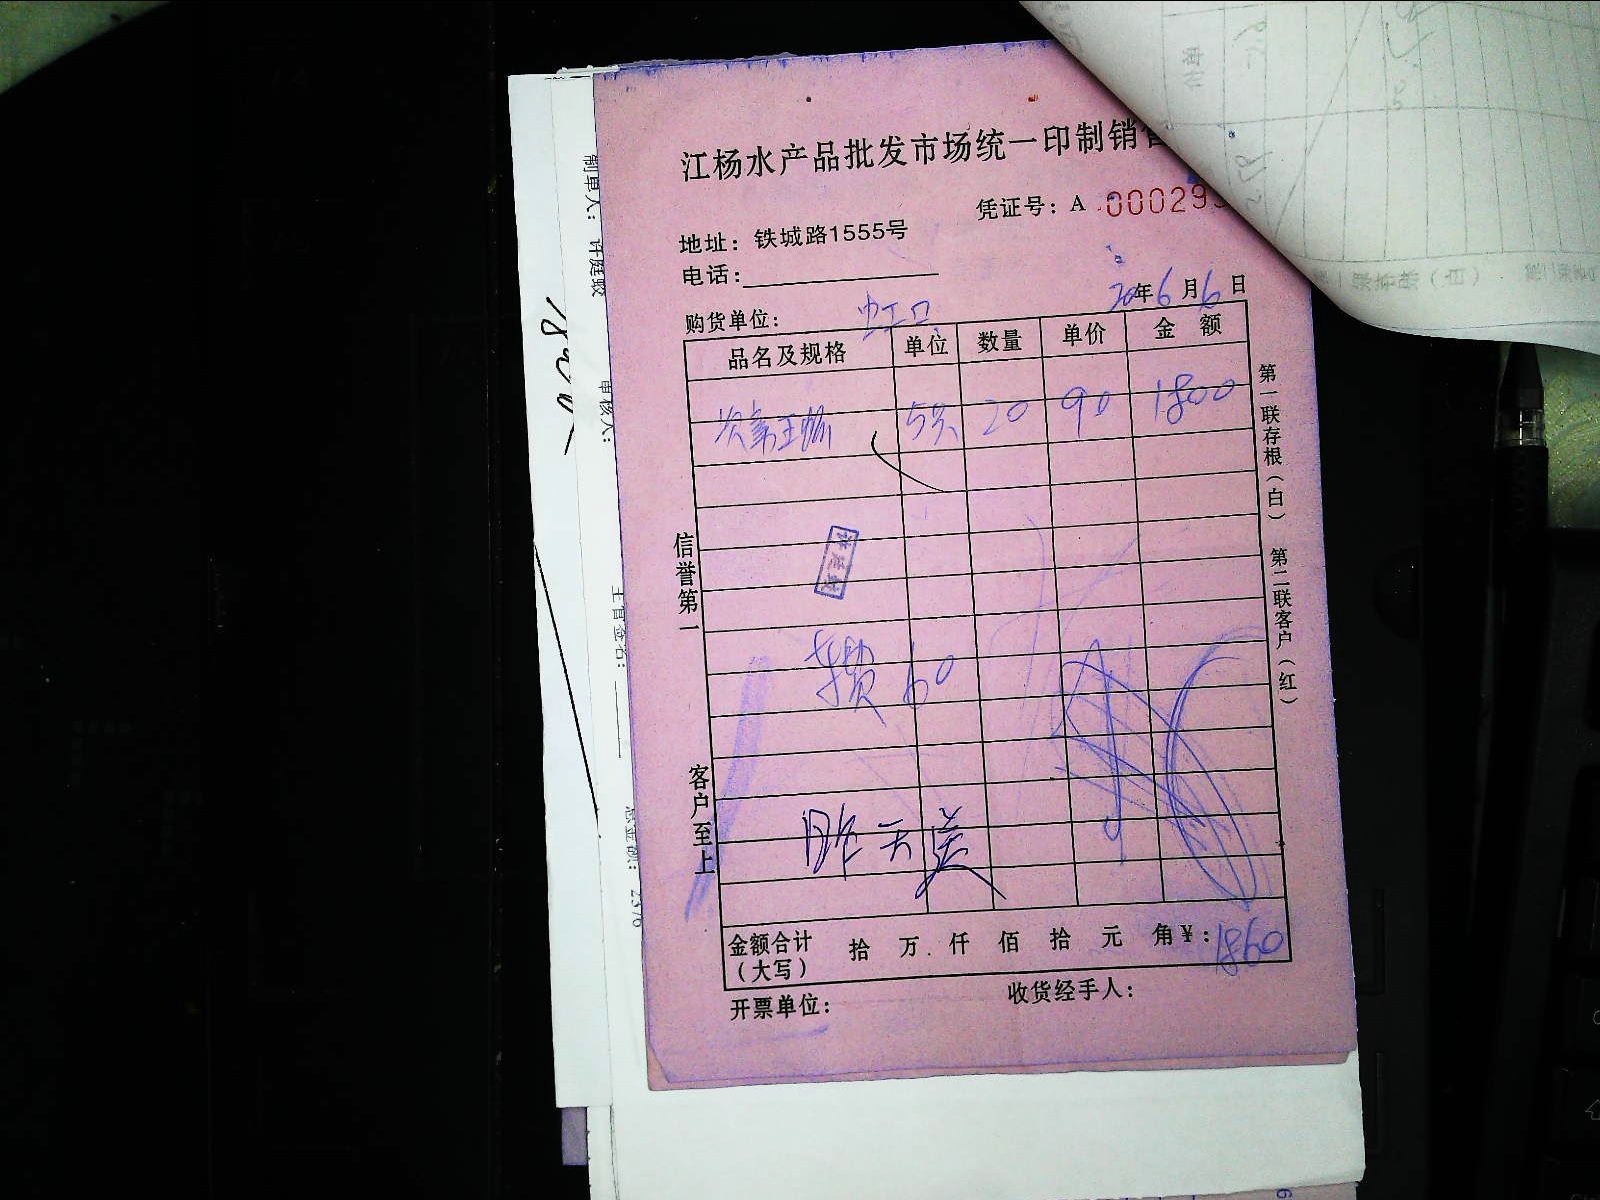 江杨水产品批发市场统一印制销售
凭证号：A 00029
地址：铁城路1555号
电话：
购货单位：虹口
20年6月6日
品名及规格 单位 数量 单价 金额
20 90 1800
车费 60
昨天送
金额合计（大写） 拾 万 仟 佰 拾 元 角 ¥：1860
开票单位： 收货经手人：
信誉第一
客户至上
第一联存根（白） 第二联客户（红）
制单人：
审核人：
主管签名：
总金额：2376